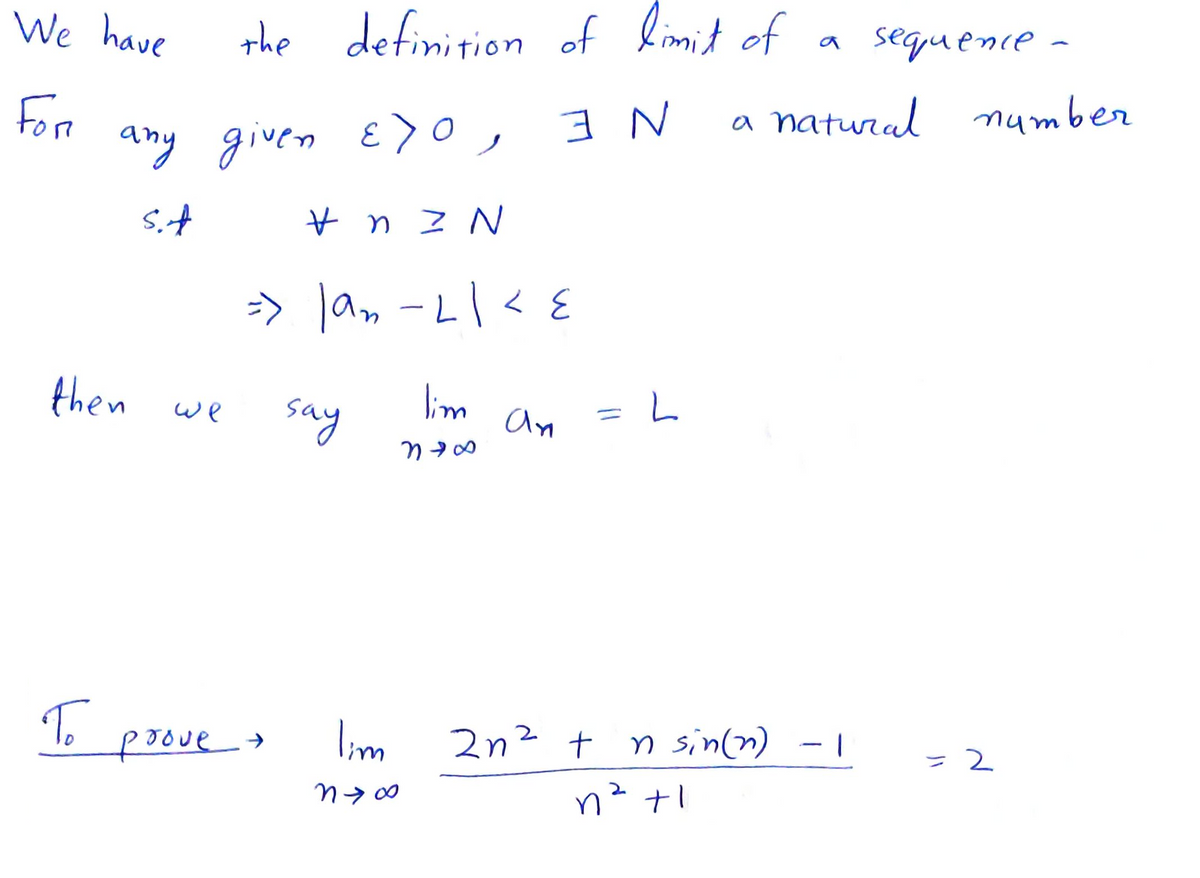 We have the definition of limit of a sequence -
For any given ε > 0, ∃ N a natural number
s.t ∀ n ≥ N
=> |aₙ - L| < ε
then we say lim n→∞ aₙ = L
To prove → lim n→∞ (2n² + n sin(n) - 1)/(n² + 1) = 2